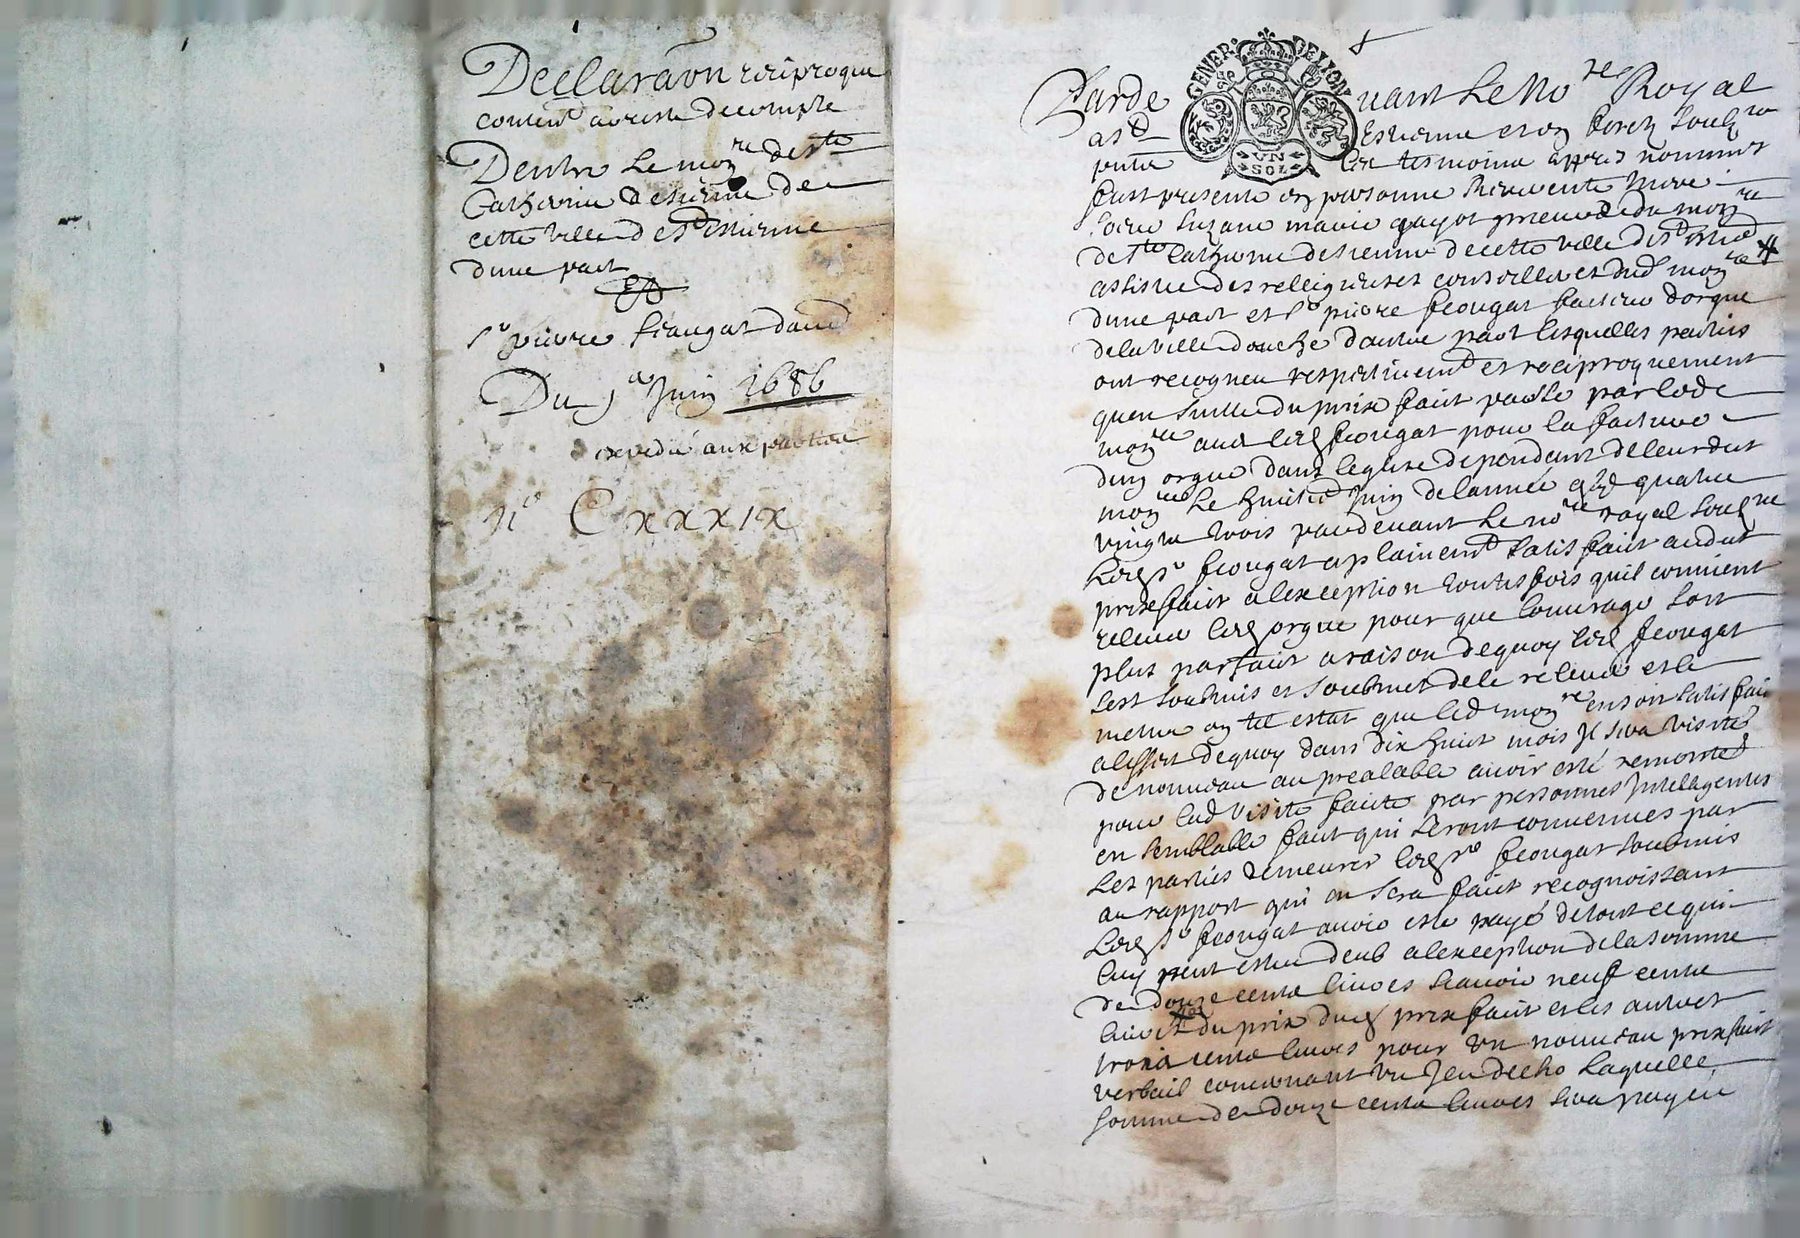 Declaraon reciproque
conten^t arreste de compte
Dentre le mon^re de s^te
Catherine destienne de
cette ville de S^t Estienne
dune part
S^r pierre feaugat dautre
Du j^er Juin 1686
expedié aux parties
n^o CXXXIX
GENER. DE LION
VN
SOL
Parde uant Le No^re Royal
Estienne en forez soubz^ne
pnte les tesmoins appres nommes
fust presente en personne Reverente mere
soeur Suzane marie guyot prieure du mon^re
de s^te Catherine destienne de cette ville de S^t Estie^e
assistee des religieuses conseilleres dud^t mon^re
dune part et S^r pierre feougat facteur dorgue
de la ville dauche dautre part lesquelles parties
ont recogneu respectivem^t et reciproquement
quen suitte du prix fait passé par led^t
mon^re aud^t feougat pour la facture
dun orgue dans leglise dependant de leurdit
mon^re Le huitie^e Juin de lannée g^bje quatre
vingtz trois pardevant le no^re royal soubz^ne
Led^t S^r feougat a plainem^t satisfait audit
prixfait a lexception toutesfois quil convient
relever led^t orgue pour que louvrage soit
plus parfait a raison dequoy led^t feougat
sest soubmis et soubmet de le relever et le
mettre en tel estat que led^t mon^re en soit satisfait
a leffect dequoy dans dix huict mois Il sera visité
de nouveau au prealable avoir esté remonté
pour lad^t visite faite par personnes Intelagentes
en semblable faict qui seront convenues par
les parties demeurer led^t S^r feougat soubmis
au rapport qui en sera faict recognoissant
Led^t S^r feougat avoir esté payé de tout ce qui
luy peut estre deub a lexception de la somme
de douze cents livres scavoir neuf cents
livres du prix dud^t prixfait et les autres
trois cents livres pour un nouveau prixfait
verbail concernant un Jeu decho laquelle
somme de douze cents livres sera payeé